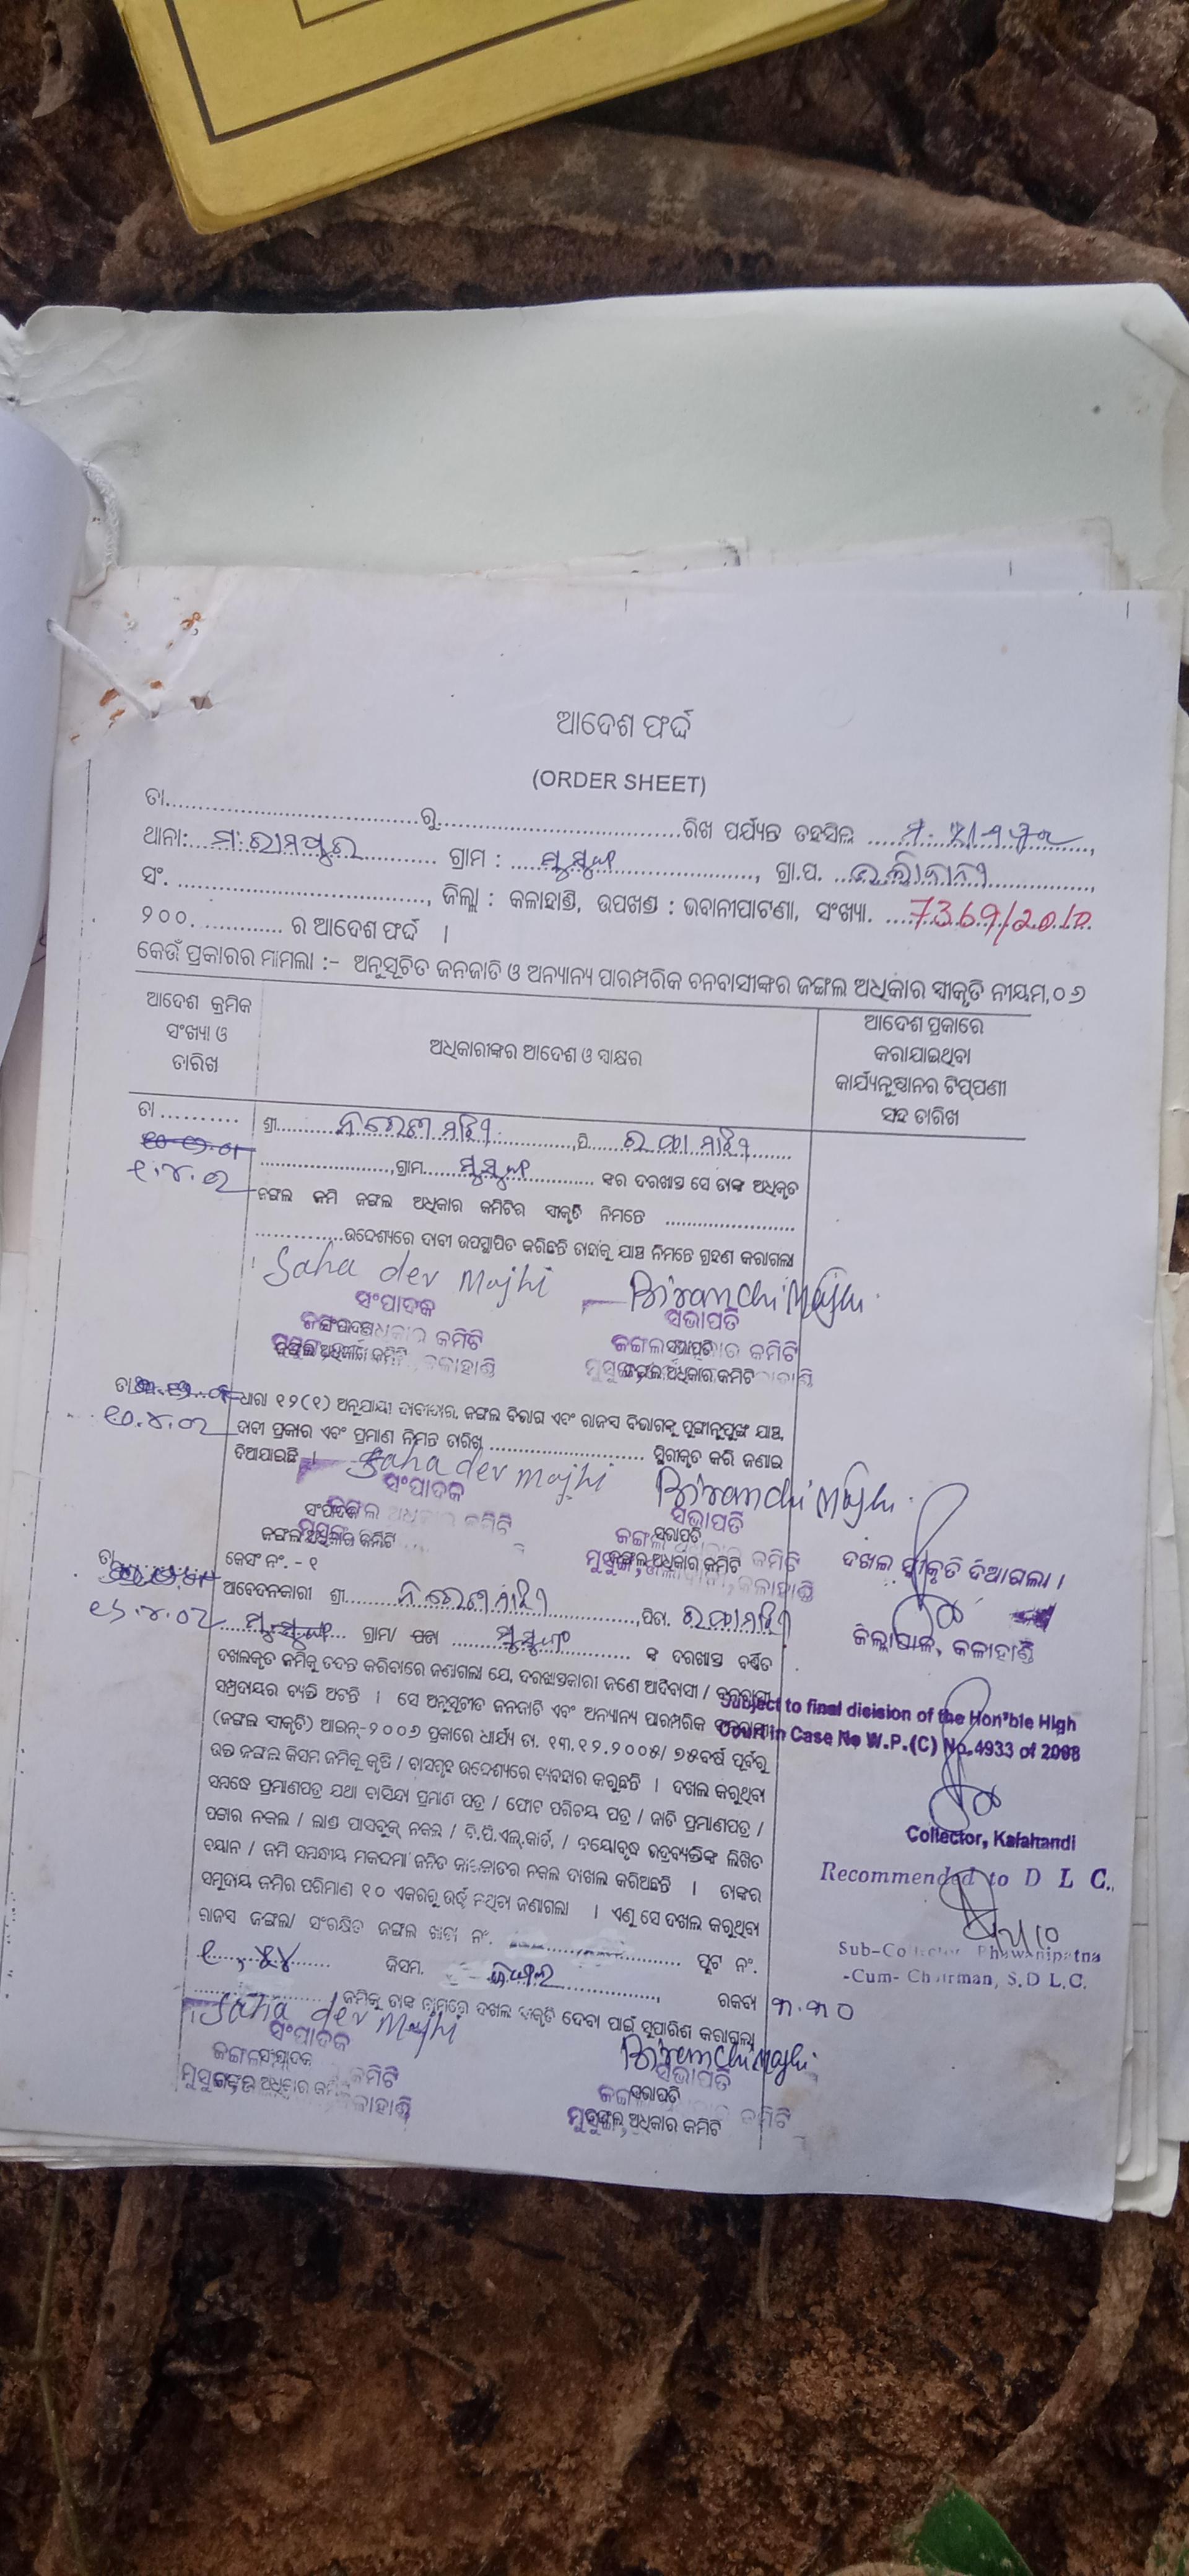 ଆଦେଶ ଫର୍ଦ୍ଦ
(ORDER SHEET)
ତା..............................ରୁ..............................ରିଖ ପର୍ଯ୍ୟନ୍ତ ତହସିଲ
ଥାନା: ମ. ରାମପୁର ଗ୍ରାମ :
, ଗ୍ରା.ପ.
ସଂ. .............................., ଜିଲ୍ଲା : କଳାହାଣ୍ଡି, ଉପଖଣ୍ଡ : ଭବାନୀପାଟଣା, ସଂଖ୍ୟା. 7369/2010
୨୦୦. ............ ର ଆଦେଶ ଫର୍ଦ୍ଦ ।
କେଉଁ ପ୍ରକାରର ମାମଲା :- ଅନୁସୂଚିତ ଜନଜାତି ଓ ଅନ୍ୟାନ୍ୟ ପାରମ୍ପରିକ ବନବାସୀଙ୍କର ଜଙ୍ଗଲ ଅଧିକାର ସ୍ୱୀକୃତି ନୀୟମ,୦୬
ଆଦେଶ କ୍ରମିକ
ସଂଖ୍ୟା ଓ
ତାରିଖ
ଅଧିକାରୀଙ୍କର ଆଦେଶ ଓ ସ୍ୱାକ୍ଷର
ଆଦେଶ ପ୍ରକାରେ
କରାଯାଇଥିବା
କାର୍ଯ୍ୟାନୁଷ୍ଠାନର ଟିପ୍ପଣୀ
ସହ ତାରିଖ
ତା ..........
ଶ୍ରୀ ମାଝି ,ପି ମାଝି
,ଗ୍ରାମ ଙ୍କର ଦରଖାସ୍ତ ସେ ତାଙ୍କ ଅଧିକୃତ
ଜଙ୍ଗଲ ଜମି ଜଙ୍ଗଲ ଅଧିକାର କମିଟିର ସ୍ୱୀକୃତି ନିମନ୍ତେ ....................
..............ଉଦ୍ଦେଶ୍ୟରେ ଦାବୀ ଉପସ୍ଥାପିତ କରିଛନ୍ତି ତାହାକୁ ଯାଞ୍ଚ ନିମନ୍ତେ ଗ୍ରହଣ କରାଗଲା
Saha dev Majhi Biranchi Majhi
ସଂପାଦକ ସଭାପତି
ଜଙ୍ଗଲ ଅଧିକାର କମିଟି ଜଙ୍ଗଲ ଅଧିକାର କମିଟି
ତା
୧୦.୪.୦୨
ଧାରା ୧୨(୧) ଅନୁଯାୟୀ ଦାବୀଦାର, ଜଙ୍ଗଲ ବିଭାଗ ଏବଂ ରାଜସ୍ୱ ବିଭାଗକୁ ପୁଙ୍ଖାନୁପୁଙ୍ଖ ଯାଞ୍ଚ,
ଦାବୀ ପ୍ରକାର ଏବଂ ପ୍ରମାଣ ନିମନ୍ତେ ତାରିଖ ...................... ସ୍ଥିରୀକୃତ କରି ଜଣାଇ
ଦିଆଯାଇଛି ।
Saha dev majhi Biranchi Majhi
ସଂପାଦକ ସଭାପତି
ଜଙ୍ଗଲ ଅଧିକାର କମିଟି ଜଙ୍ଗଲ ଅଧିକାର କମିଟି
କେସ ନଂ. - ୧
ଆବେଦନକାରୀ ଶ୍ରୀ. ମାଝି ,ପିତା. ମାଝି
ଗ୍ରାମ/ ଙ୍କ ଦରଖାସ୍ତ ବର୍ଣ୍ଣିତ
ଦଖଲକୃତ ଜମିକୁ ତଦନ୍ତ କରିବାରେ ଜଣାଗଲା ଯେ, ଦରଖାସ୍ତକାରୀ ଜଣେ ଆଦିବାସୀ / ବନବାସୀ
ସମ୍ପ୍ରଦାୟର ବ୍ୟକ୍ତି ଅଟନ୍ତି । ସେ ଅନୁସୂଚୀତ ଜନଜାତି ଏବଂ ଅନ୍ୟାନ୍ୟ ପାରମ୍ପରିକ ବନବାସୀ
(ଜଙ୍ଗଲ ସ୍ୱୀକୃତି) ଆଇନ୍-୨୦୦୬ ପ୍ରକାରେ ଧାର୍ଯ୍ୟ ତା. ୧୩.୧୨.୨୦୦୫/ ୭୫ବର୍ଷ ପୂର୍ବରୁ
ଉକ୍ତ ଜଙ୍ଗଲ କିସମ ଜମିକୁ କୃଷି / ବାସଗୃହ ଉଦ୍ଦେଶ୍ୟରେ ବ୍ୟବହାର କରୁଛନ୍ତି । ଦଖଲ କରୁଥିବା
ସମ୍ବନ୍ଧେ ପ୍ରମାଣପତ୍ର ଯଥା ବାସିନ୍ଦା ପ୍ରମାଣ ପତ୍ର / ଫୋଟ ପରିଚୟ ପତ୍ର / ଜାତି ପ୍ରମାଣପତ୍ର /
ପଟ୍ଟାର ନକଲ / ଲାଣ୍ଡ ପାସବୁକ୍ ନକଲ / ବି.ପି.ଏଲ୍.କାର୍ଡ, / ବୟୋବୃଦ୍ଧ ଭଦ୍ରବ୍ୟକ୍ତିଙ୍କ ଲିଖିତ
ବୟାନ / ଜମି ସମ୍ବନ୍ଧୀୟ ମକଦ୍ଦମା ଜନିତ କାଗଜାତର ନକଲ ଦାଖଲ କରିଅଛନ୍ତି । ତାଙ୍କର
ସମୁଦାୟ ଜମିର ପରିମାଣ ୧୦ ଏକରରୁ ଉର୍ଦ୍ଧ୍ୱ ନଥିବା ଜଣାଗଲା । ଏଣୁ ସେ ଦଖଲ କରୁଥିବା
ରାଜସ୍ୱ ଜଙ୍ଗଲ/ ସଂରକ୍ଷିତ ଜଙ୍ଗଲ ଖାତା ନଂ. ପ୍ଲଟ ନଂ.
କିସମ. ଜଙ୍ଗଲ , ରକବା ୩.୩୦
ଜମିକୁ ତାଙ୍କ ନାମରେ ଦଖଲ ସ୍ୱୀକୃତି ଦେବା ପାଇଁ ସୁପାରିଶ କରାଗଲା
Saha dev Majhi Biranchi Majhi
ସଂପାଦକ ସଭାପତି
ଜଙ୍ଗଲ ଅଧିକାର କମିଟି ଜଙ୍ଗଲ ଅଧିକାର କମିଟି
ଦଖଲ ସ୍ୱୀକୃତି ଦିଆଗଲା ।
ଜିଲ୍ଲାପାଳ, କଳାହାଣ୍ଡି
Subject to final dicision of the Hon'ble High
Court in Case No W.P.(C) No.4933 of 2008
Collector, Kalahandi
Recommended to D L C.,
Sub-Collector Bhawanipatna
-Cum- Chairman, S.D L.C.